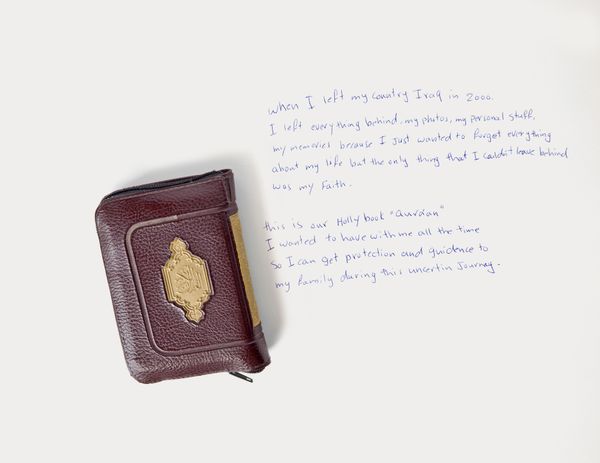 when I left my country Iraq in 2000.
I left everything behind, my photos, my personal stuff,
my memories because I just wanted to forget everything
about my life but the only thing that I couldn't leave behind
was my Faith.
this is our Holly book "Qur'an"
I wanted to have with me all the time
So I can get protection and guidence to
my family during this uncertin Journey.